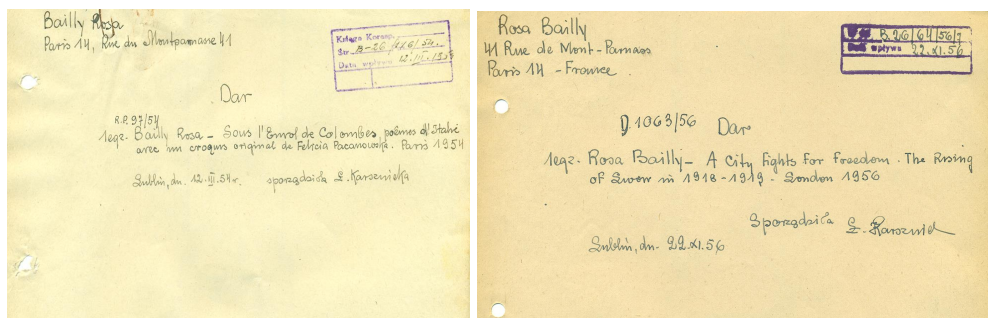 Bailly Rosa
Paris 14, Rue du Montparnasse 41
Księga Koresp.
Str. B-26/226/54.
Data wpływu 12.III.1954
Dar
R.P. 97/54
1egz. Bailly Rosa – Sous l'Envol de Colombes, poèmes d'Italie
avec un croquis original de Felicia Pacanowska. Paris 1954
Lublin, dn. 12.III.54r. sporządziła Ł. Karsznicka
Rosa Bailly
41 Rue de Mont-Parnass
Paris 14 – France
B.26/64/56/7
Data wpływu 22.XI.56
D.1063/56 Dar
1egz. Rosa Bailly – A City fights for freedom. The Rising
of Lwow in 1918-1919 - London 1956
Sporządziła Ł. Karsznick
Lublin, dn. 22.XI.56